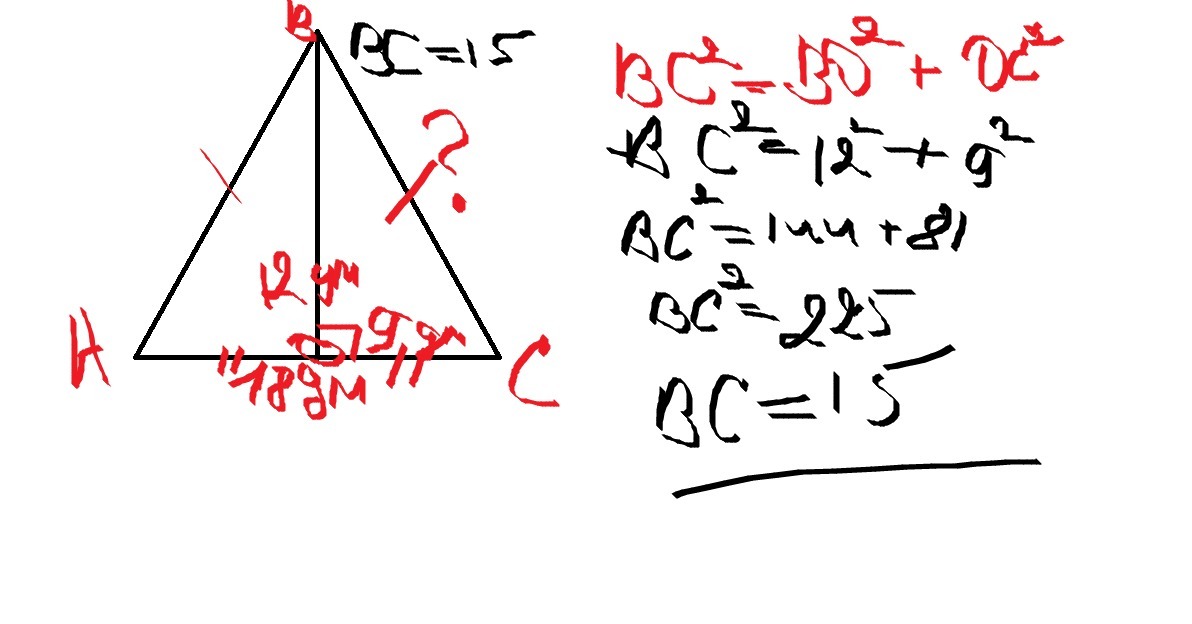 B
BC=15
?
12 дм
9 дм
A
18 дм
C
BC²=BD²+DC²
BC²=12²+9²
BC²=144+81
BC²=225
BC=15